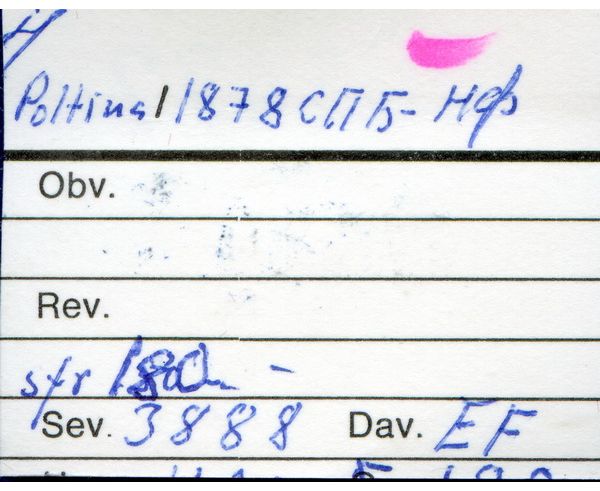 Poltina 1878 СПБ-НФ
Obv.
Rev.
sfr 180.-
Sev. 3888 Dav. EF